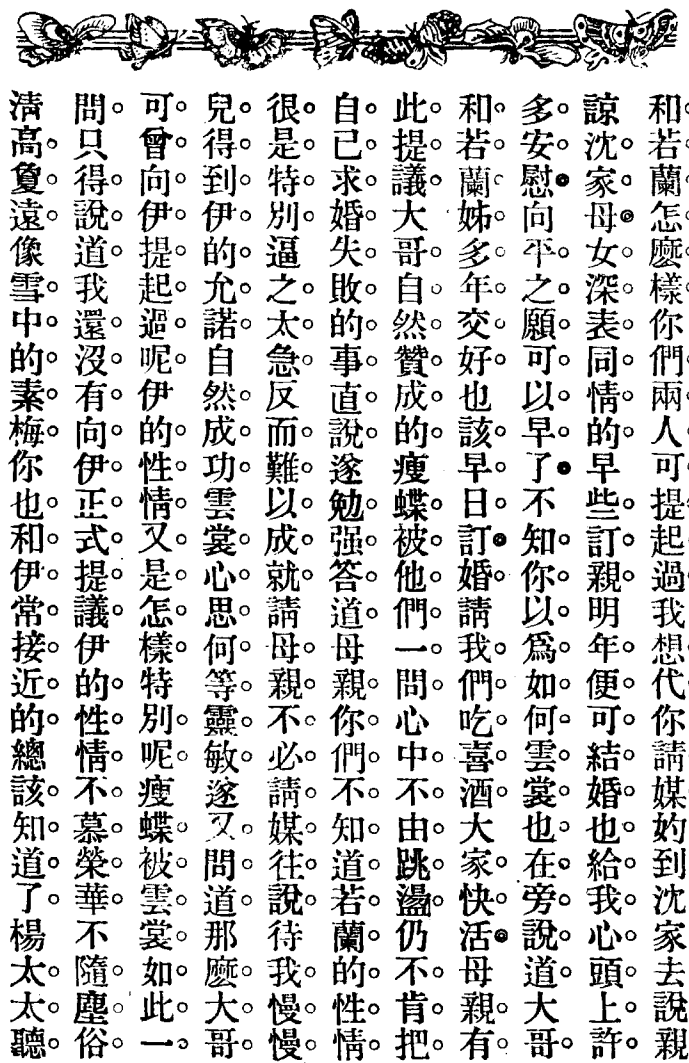 和若蘭怎麽樣你們兩人可提起過我想代你請媒妁到沈家去說親
諒沈家母女深表同情的早些訂親明年便可結婚也給我心頭上許
多安慰向平之願可以早了不知你以爲如何雲裳也在旁說道大哥
和若蘭姊多年交好也該早日訂婚請我們吃喜酒大家快活母親有
此提議大哥自然贊成的瘦蝶被他們一問心中不由跳盪仍不肯把
自己求婚失敗的事直說遂勉强答道母親你們不知道若蘭的性情
很是特別逼之太急反而難以成就請母親不必請媒往說待我慢慢
兒得到伊的允諾自然成功雲裳心思何等靈敏遂又問道那麽大哥
可曾向伊提起過呢伊的性情又是怎樣特別呢瘦蝶被雲裳如此一
問只得說道我還沒有向伊正式提議伊的性情不慕榮華不隨塵俗
清高夐遠像雪中的素梅你也和伊常接近的總該知道了楊太太聽